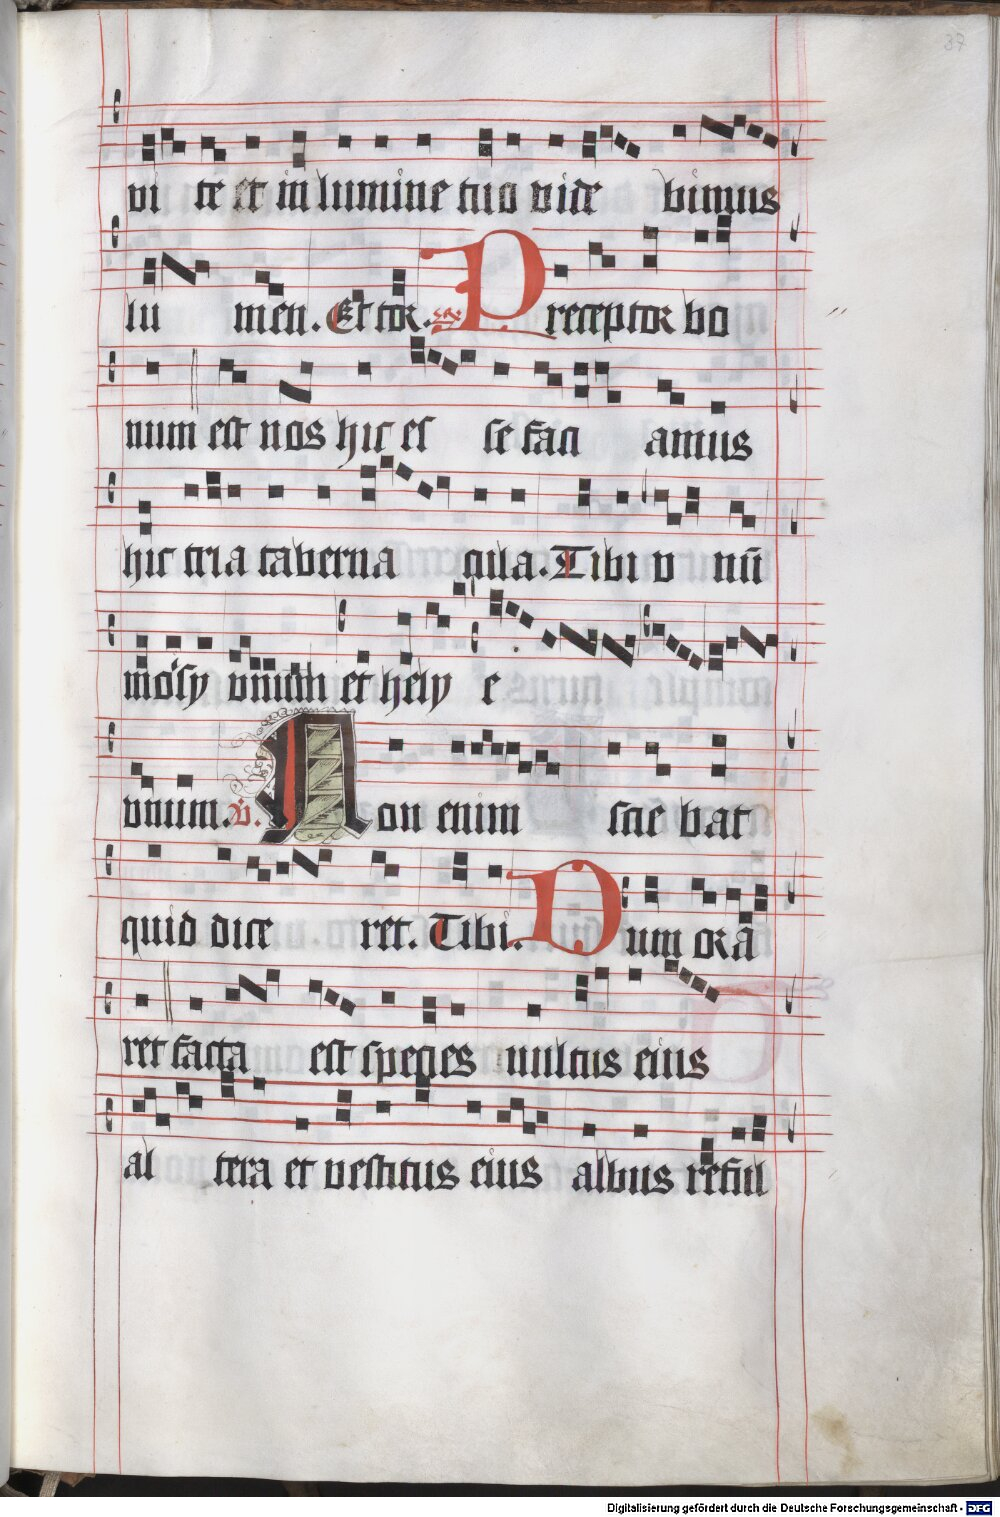 37
vi te et in lumine tuo vide bimus
lu men. Et tor. Preceptor bo
num est nos hic es se faci amus
hic tria taberna cula. Tibi v nū
moysy vnum et hely e
vnum. V. Non enim scie bat
quid dice ret. Tibi. Dum ora
ret facta est species vultus eius
al tera et vestitus eius albus reful
Digitalisierung gefördert durch die Deutsche Forschungsgemeinschaft - DFG